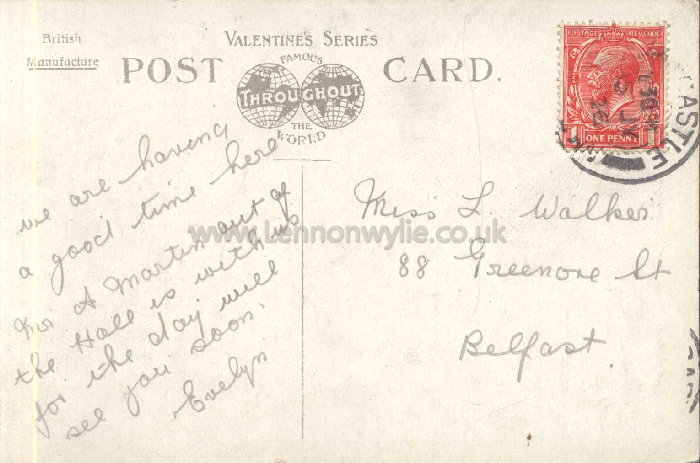 British
Manufacture
VALENTINE'S SERIES
POST CARD.
FAMOUS
THROUGHOUT
THE
WORLD
POSTAGE REVENUE
ONE PENNY
we are having
a good time here
A Martin out of
the Hall is with us
for the day will
see you soon.
Evelyn
Miss L Walker
88 Greenore St
Belfast.
www.Lennonwylie.co.uk